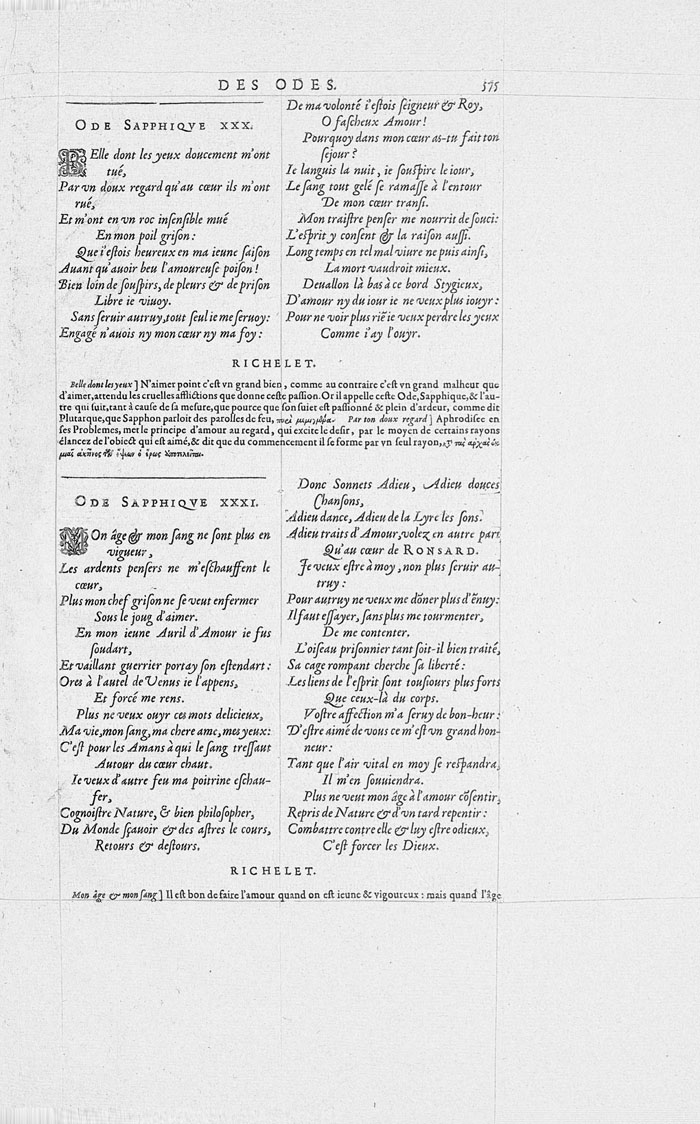 DES ODES. 575
ODE SAPPHIQVE XXX.
BElle dont les yeux doucement m'ont
tué,
Par vn doux regard qu'au cœur ils m'ont
rué,
Et m'ont en vn roc insensible mué
En mon poil grison:
Que i'estois heureux en ma ieune saison
Auant qu'auoir beu l'amoureuse poison!
Bien loin de souspirs, de pleurs & de prison
Libre ie viuoy.
Sans seruir autruy, tout seul ie me seruoy:
Engagé n'auois ny mon cœur ny ma foy:
De ma volonté i'estois seigneur & Roy,
O fascheux Amour!
Pourquoy dans mon cœur as-tu fait ton
sejour?
Ie languis la nuit, ie souspire le iour,
Le sang tout gelé se ramasse à l'entour
De mon cœur transi.
Mon traistre penser me nourrit de souci:
L'esprit y consent & la raison aussi.
Long temps en tel mal viure ne puis ainsi,
La mort vaudroit mieux.
Deuallon là bas à ce bord Stygieux,
D'amour ny du iour ie ne veux plus iouyr:
Pour ne voir plus riẽ ie veux perdre les yeux
Comme i'ay l'ouyr.
RICHELET.
Belle dont les yeux] N'aimer point c'est vn grand bien, comme au contraire c'est vn grand malheur que
d'aimer, attendu les cruelles afflictions que donne ceste passion. Or il appelle ceste Ode, Sapphique, & l'au-
tre qui suit, tant à cause de sa mesure, que pource que son suiet est passionné & plein d'ardeur, comme dit
Plutarque, que Sapphon parloit des parolles de feu, Par ton doux regard] Aphrodisee en
ses Problemes, met le principe d'amour au regard, qui excite le desir, par le moyen de certains rayons
élancez de l'obiect qui est aimé, & dit que du commencement il se forme par vn seul rayon,
ODE SAPPHIQVE XXXI.
MOn âge & mon sang ne sont plus en
vigueur,
Les ardents pensers ne m'eschauffent le
cœur,
Plus mon chef grison ne se veut enfermer
Sous le joug d'aimer.
En mon ieune Auril d'Amour ie fus
soudart,
Et vaillant guerrier portay son estendart:
Ores à l'autel de Venus ie l'appens,
Et forcé me rens.
Plus ne veux ouyr ces mots delicieux,
Ma vie, mon sang, ma chere ame, mes yeux:
C'est pour les Amans à qui le sang tressaut
Autour du cœur chaut.
Ie veux d'autre feu ma poitrine eschau-
fer,
Cognoistre Nature, & bien philosopher,
Du Monde sçauoir & des astres le cours,
Retours & destours.
Donc Sonnets Adieu, Adieu douces
Chansons,
Adieu dance, Adieu de la Lyre les sons.
Adieu traits d'Amour, volez en autre part
Qu'au cœur de RONSARD.
Je veux estre à moy, non plus seruir au-
truy:
Pour autruy ne veux me dõner plus d'ẽnuy:
Il faut essayer, sans plus me tourmenter,
De me contenter.
L'oiseau prisonnier tant soit-il bien traité,
Sa cage rompant cherche sa liberté:
Les liens de l'esprit sont tousiours plus forts
Que ceux-là du corps.
Vostre affection m'a seruy de bon-heur:
D'estre aimé de vous ce m'est vn grand hon-
neur:
Tant que l'air vital en moy se respandra,
Il m'en souuiendra.
Plus ne veut mon âge à l'amour cõsentir,
Repris de Nature & d'vn tard repentir:
Combattre contre elle & luy estre odieux,
C'est forcer les Dieux.
RICHELET.
Mon âge & mon sang] Il est bon de faire l'amour quand on est ieune & vigoureux: mais quand l'âge